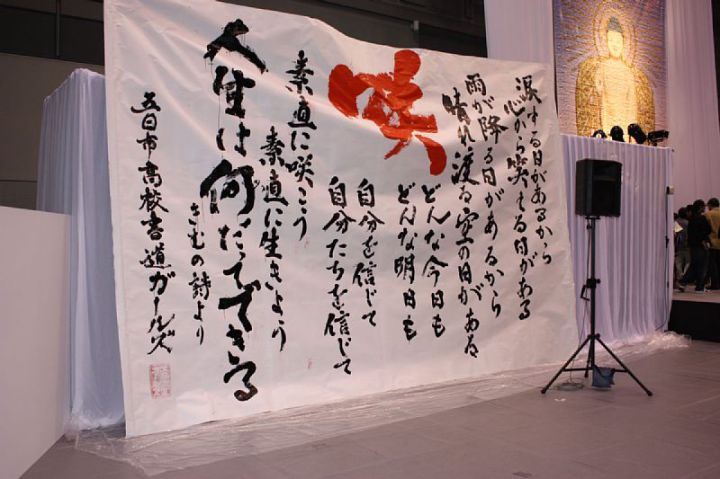 涙する日があるから
心から笑える日がある
雨が降る日があるから
晴れ渡る空の日がある
咲
どんな今日も
どんな明日も
自分を信じて
自分たちを信じて
素直に咲こう
素直に生きよう
人生は何だってできる
きもの詩より
五日市高校書道ガールズ